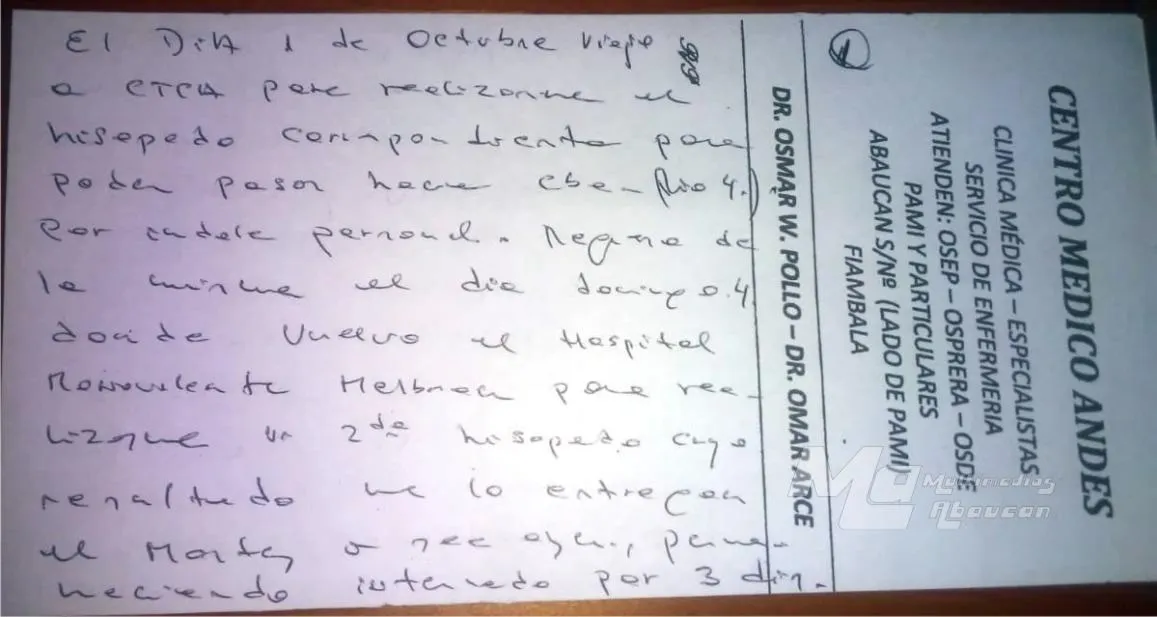 El Dia 1 de Octubre viaje
a CTCA para realizarme el
hisopado correspondiente para
poder pasar hacia Cba - Rio 4.
Por indole personal. Regreso de
la misma el dia domingo 4
donde vuelvo al Hospital
Monovalente Malbran para rea-
lizarme un 2do hisopado cuyo
resultado me lo entregan
el Martes o sea ayer, perma-
neciendo internado por 3 dias.
1
CENTRO MEDICO ANDES
CLINICA MÉDICA – ESPECIALISTAS
SERVICIO DE ENFERMERIA
ATIENDEN: OSEP – OSPRERA – OSDE
PAMI Y PARTICULARES
ABAUCAN S/Nº (LADO DE PAMI)
FIAMBALA
DR. OSMAR W. POLLO – DR. OMAR ARCE
Ma Multimedias
Abaucan